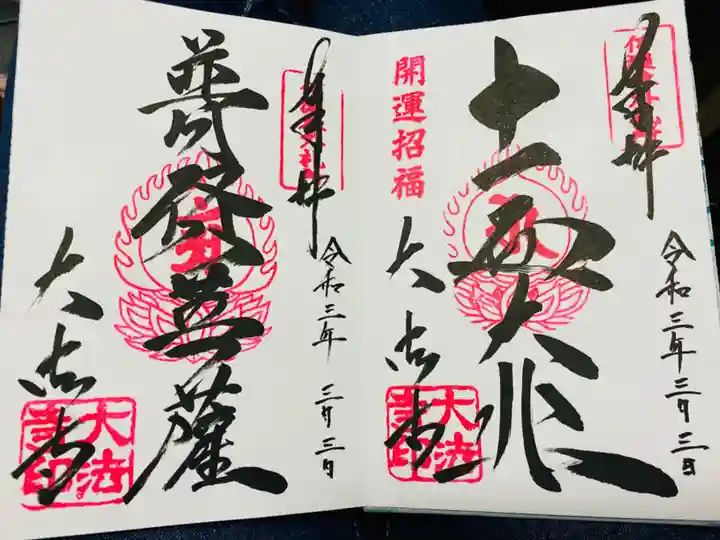 奉拝
令和三年三月三日
開運招福
大法寺
大法寺印
奉拝
令和三年三月三日
普賢菩薩
大法寺
大法寺印